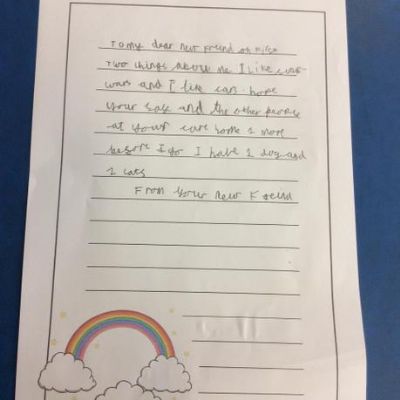 To my dear new friend
two things about me I like
wars and I like cars. hope
your safe and the other people
at your care home 1 more
before I go I have 1 dog and
2 cats
From your new Friend